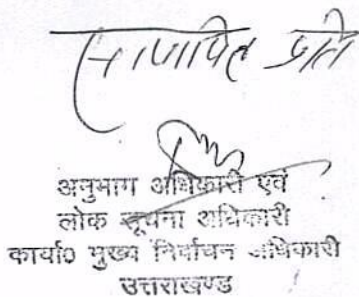 सत्यापित प्रति
अनुभाग अधिकारी एवं
लोक सूचना अधिकारी
कार्या० मुख्य निर्वाचन अधिकारी
उत्तराखण्ड